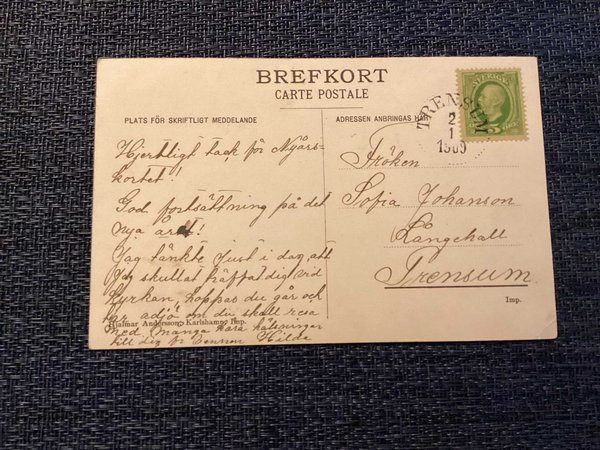 BREFKORT
CARTE POSTALE
PLATS FÖR SKRIFTLIGT MEDDELANDE
ADRESSEN ANBRINGAS HÄR
SVERIGE
5 ÖRE
TRENSUM
2
1
1909
Hjertligt tack för Nyårs-
kortet!
God fortsättning på det
nya året!
Jag tänkte just i dag att
jag skullat träffat dig vid
kyrkan, hoppas du går och
tar adjö om du skall resa
med många kära hälsningar
till dig fr vännen Hilda
Hjalmar Andersson, Karlshamn, Imp.
Fröken
Sofia Johanson
Långehall
Trensum
Imp.